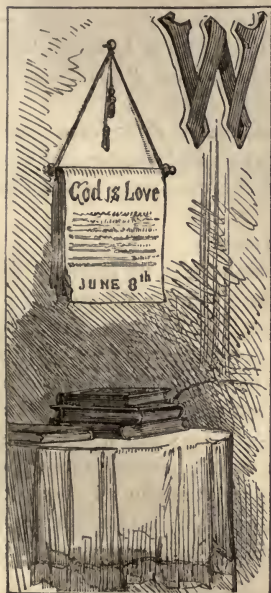 W
God is Love
JUNE 8th